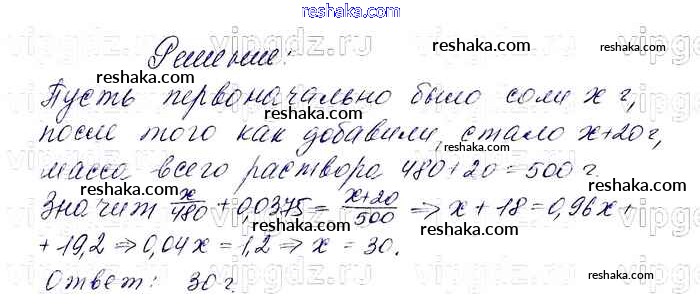 reshaka.com
Решение:
reshaka.com
reshaka.com
Пусть первоначально было соли x г,
reshaka.com
после того как добавили, стало x+20 г,
масса всего раствора 480+20=500 г.
reshaka.com
reshaka.com
Значит x/480 + 0,0375 = (x+20)/500 ⇒ x + 18 = 0,96x +
reshaka.com
+ 19,2 ⇒ 0,04x = 1,2 ⇒ x = 30.
reshaka.com
Ответ: 30 г.
reshaka.com